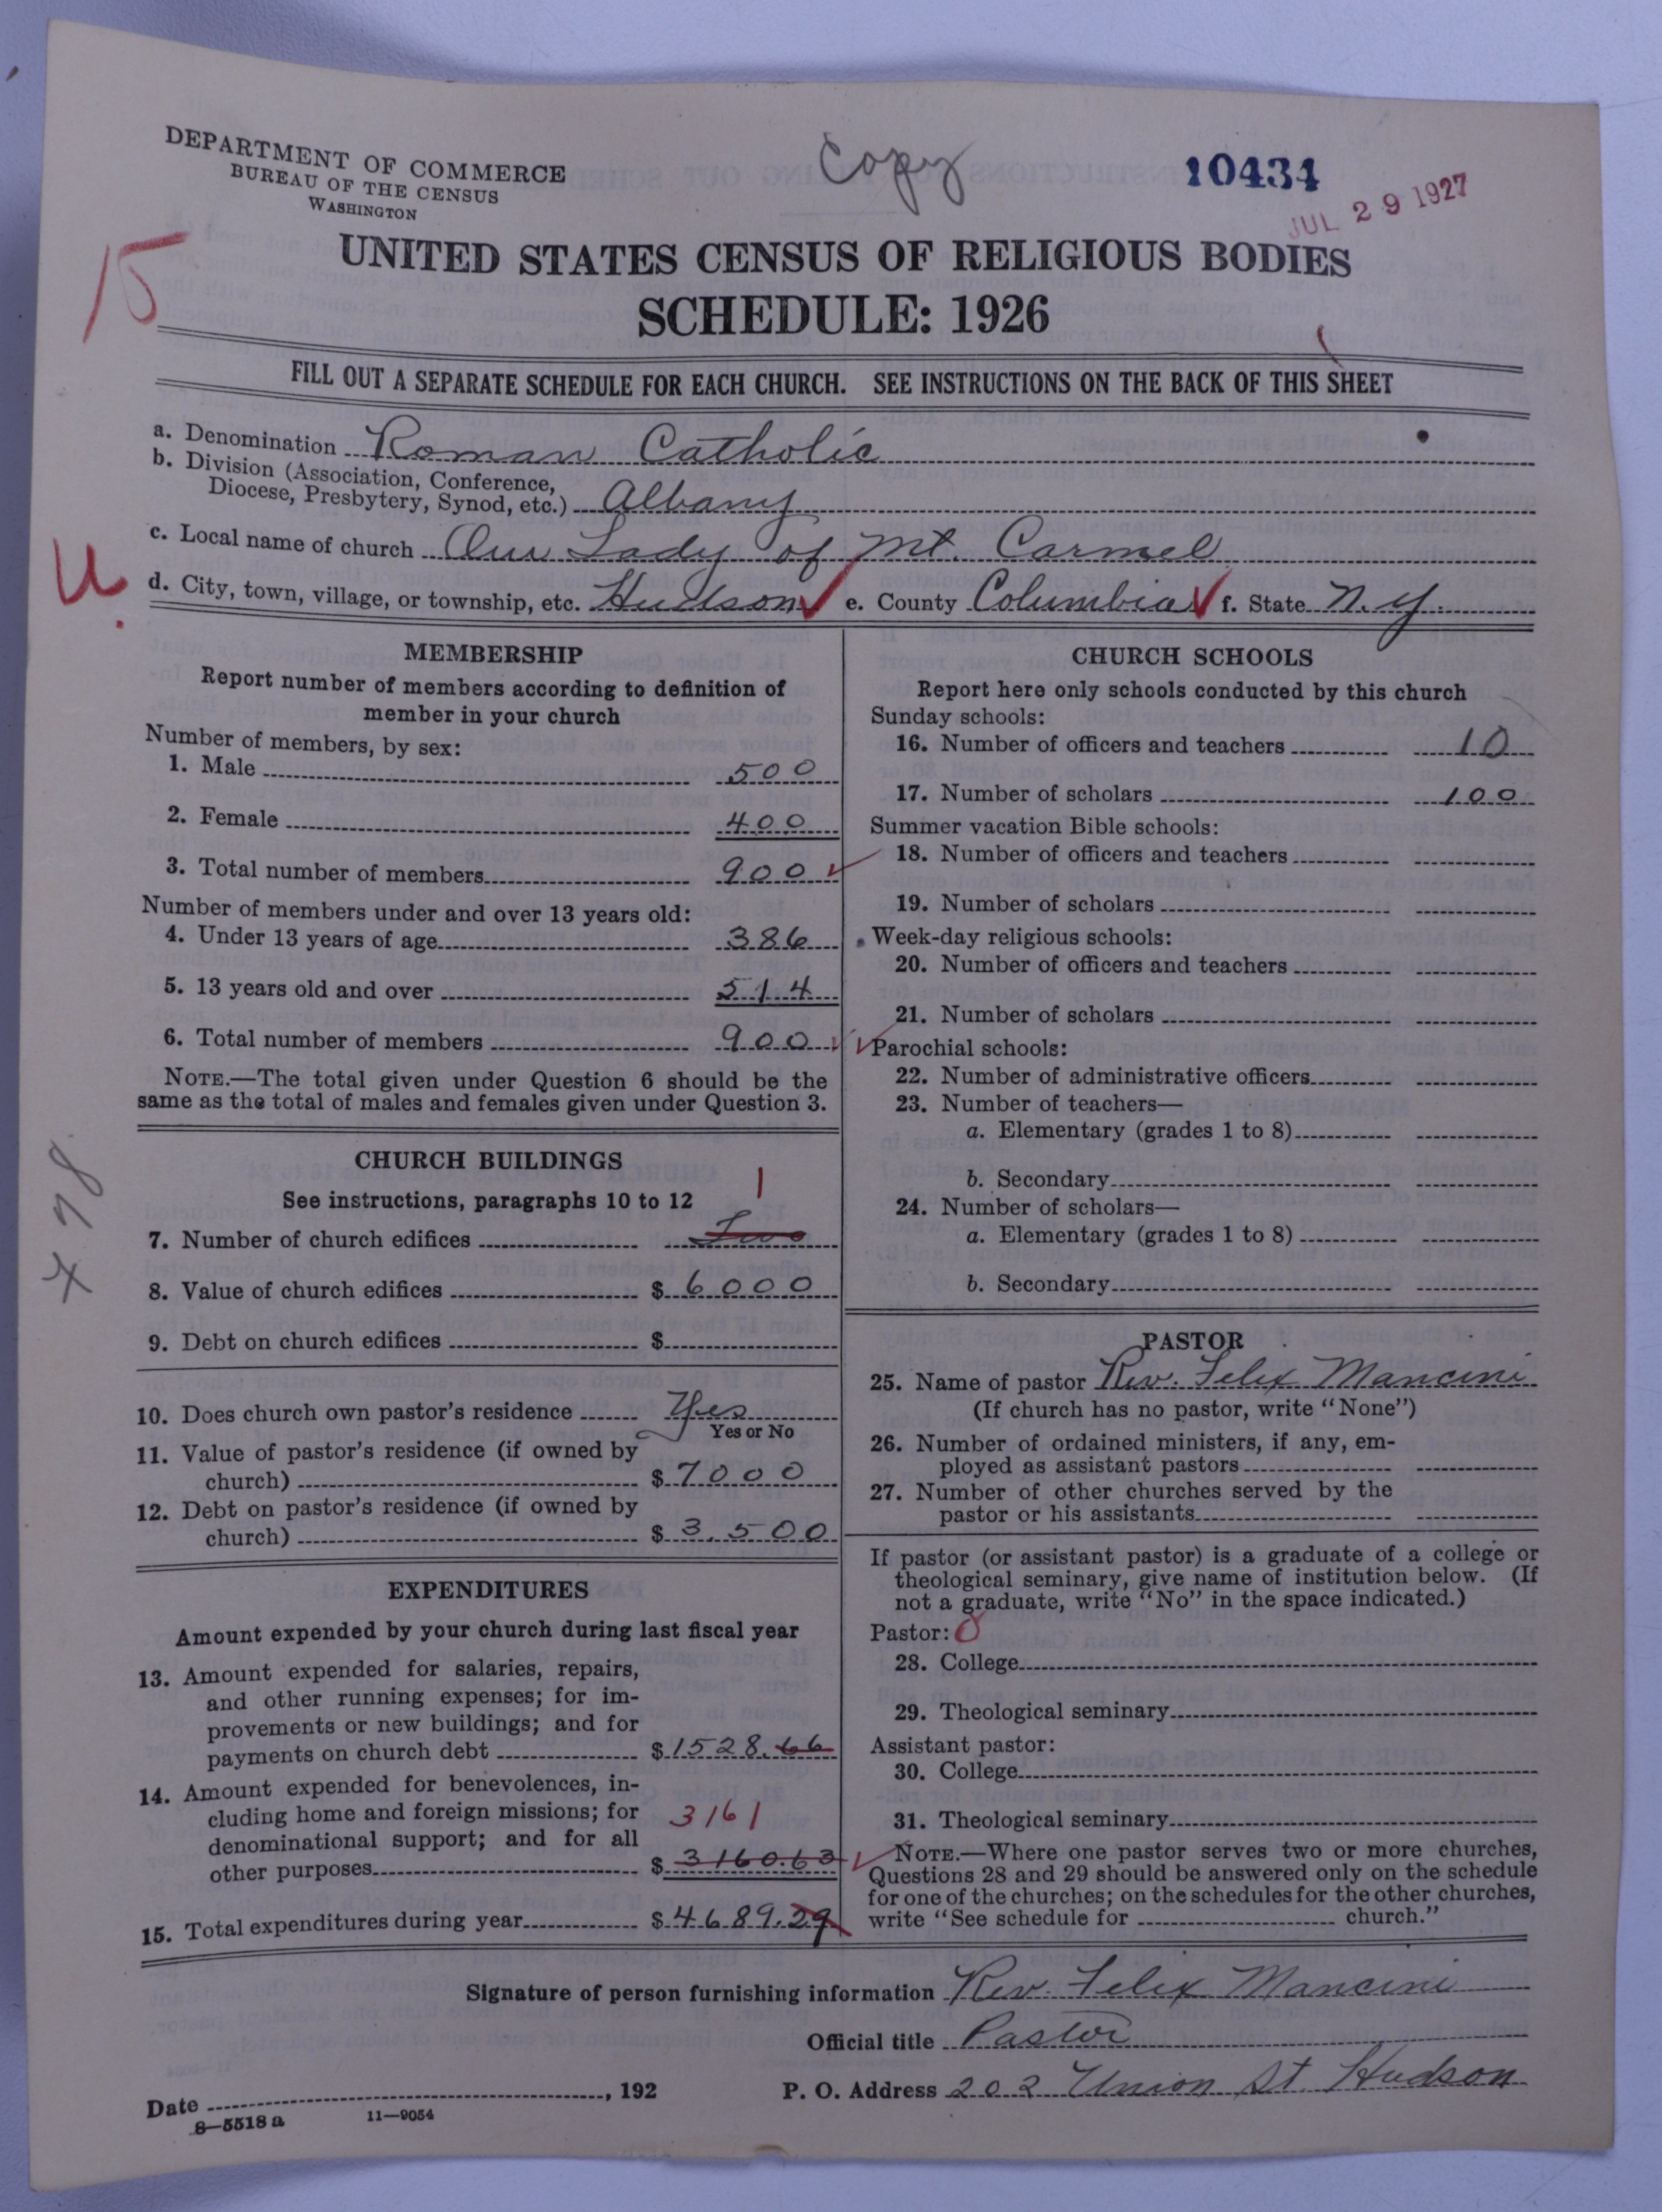 DEPARTMENT OF COMMERCE
BUREAU OF THE CENSUS
WASHINGTON
Copy
10434
JUL 29 1927
15
UNITED STATES CENSUS OF RELIGIOUS BODIES
SCHEDULE: 1926
FILL OUT A SEPARATE SCHEDULE FOR EACH CHURCH. SEE INSTRUCTIONS ON THE BACK OF THIS SHEET
a. Denomination Roman Catholic
b. Division (Association, Conference,
Diocese, Presbytery, Synod, etc.) Albany
c. Local name of church Our Lady of Mt. Carmel
U.
d. City, town, village, or township, etc. Hudson e. County Columbia f. State N.Y.
MEMBERSHIP
Report number of members according to definition of
member in your church
Number of members, by sex:
1. Male 500
2. Female 400
3. Total number of members 900
Number of members under and over 13 years old:
4. Under 13 years of age 386
5. 13 years old and over 514
6. Total number of members 900
NOTE.—The total given under Question 6 should be the
same as the total of males and females given under Question 3.
478
CHURCH BUILDINGS
See instructions, paragraphs 10 to 12
1
7. Number of church edifices Two
8. Value of church edifices $ 6000
9. Debt on church edifices $
10. Does church own pastor's residence Yes
Yes or No
11. Value of pastor's residence (if owned by
church) $ 7000
12. Debt on pastor's residence (if owned by
church) $ 3,500
EXPENDITURES
Amount expended by your church during last fiscal year
13. Amount expended for salaries, repairs,
and other running expenses; for im-
provements or new buildings; and for
payments on church debt $ 1528.66
14. Amount expended for benevolences, in-
cluding home and foreign missions; for 3161
denominational support; and for all
other purposes $ 3160.63
15. Total expenditures during year $ 4689.29
CHURCH SCHOOLS
Report here only schools conducted by this church
Sunday schools:
16. Number of officers and teachers 10
17. Number of scholars 100
Summer vacation Bible schools:
18. Number of officers and teachers
19. Number of scholars
Week-day religious schools:
20. Number of officers and teachers
21. Number of scholars
Parochial schools:
22. Number of administrative officers
23. Number of teachers—
a. Elementary (grades 1 to 8)
b. Secondary
24. Number of scholars—
a. Elementary (grades 1 to 8)
b. Secondary
PASTOR
25. Name of pastor Rev. Felix Mancini
(If church has no pastor, write "None")
26. Number of ordained ministers, if any, em-
ployed as assistant pastors
27. Number of other churches served by the
pastor or his assistants
If pastor (or assistant pastor) is a graduate of a college or
theological seminary, give name of institution below. (If
not a graduate, write "No" in the space indicated.)
Pastor: 0
28. College
29. Theological seminary
Assistant pastor:
30. College
31. Theological seminary
NOTE.—Where one pastor serves two or more churches,
Questions 28 and 29 should be answered only on the schedule
for one of the churches; on the schedules for the other churches,
write "See schedule for church."
Signature of person furnishing information Rev. Felix Mancini
Official title Pastor
Date , 192 P. O. Address 202 Union St Hudson
8—5518 a 11—9054